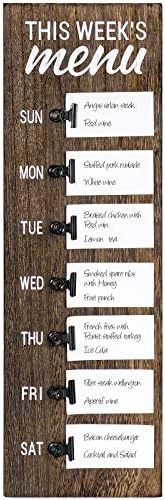 THIS WEEK'S
menu
SUN
Angus sirloin steak
Red wine
MON
Stuffed pork roulade
White wine
TUE
Braised chicken with
Red win
Lemon tea
WED
Smoked spare ribs
with Honey
Fruit punch
THU
French fries with
Roast stuffed turkey
Ice Cola
FRI
Fillet steak wellington
Aperitif wine
SAT
Bacon cheeseburger
Cocktail and Salad